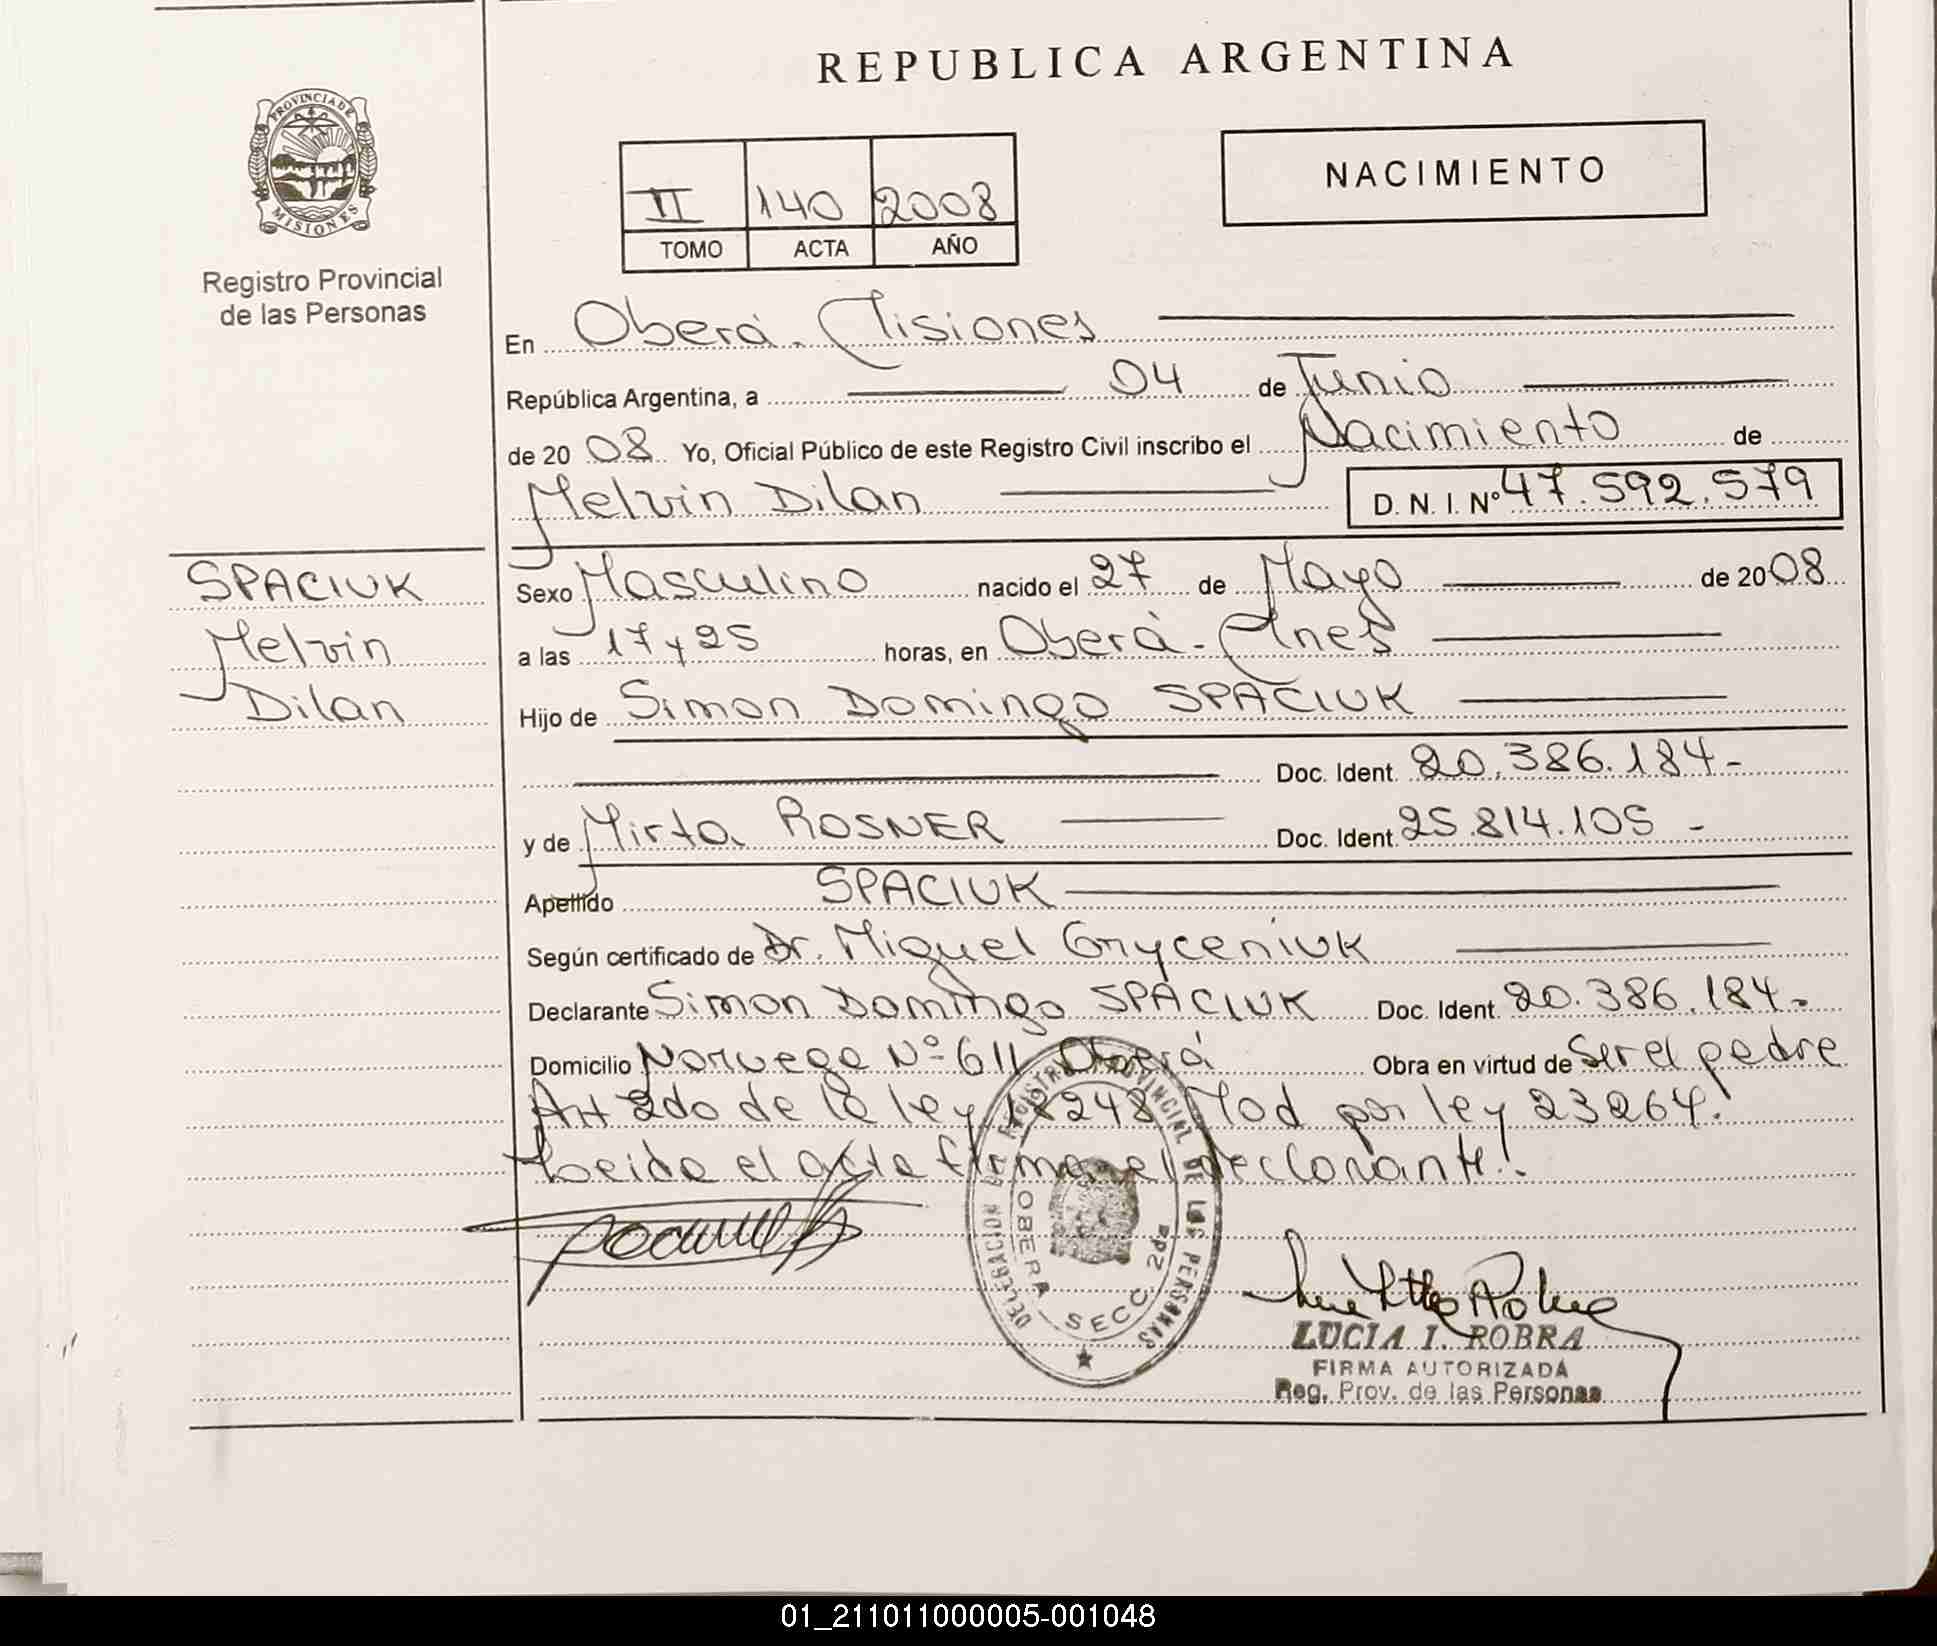 REPUBLICA ARGENTINA
PROVINCIA DE
MISIONES
Registro Provincial
de las Personas
NACIMIENTO
II 140 2008
TOMO ACTA AÑO
En Oberá. Misiones
República Argentina, a 04 de Junio
de 2008 Yo, Oficial Público de este Registro Civil inscribo el Nacimiento de
Melvin Dilan D. N. I. Nº 47.592.579
SPACIUK
Melvin
Dilan
Sexo Masculino nacido el 27 de Mayo de 2008
a las 17 y 25 horas, en Oberá - Mnes
Hijo de Simon Domingo SPACIUK
Doc. Ident. 20.386.184-
y de Mirta ROSNER Doc. Ident. 25.814.105 -
Apellido SPACIUK
Según certificado de Dr. Miguel Gryceniuk
Declarante Simon Domingo SPACIUK Doc. Ident. 20.386.184-
Domicilio Noruega Nº 611 Oberá Obra en virtud de Ser el padre
Art 2do de la ley 18248 Mod por ley 23264.
Leida el acta firma el declarante!.
DELEGACION DEL REGISTRO PROVINCIAL DE LAS PERSONAS
OBERA SECC. 2da
LUCIA I. ROBRA
FIRMA AUTORIZADA
Reg. Prov. de las Personas
01_211011000005-001048